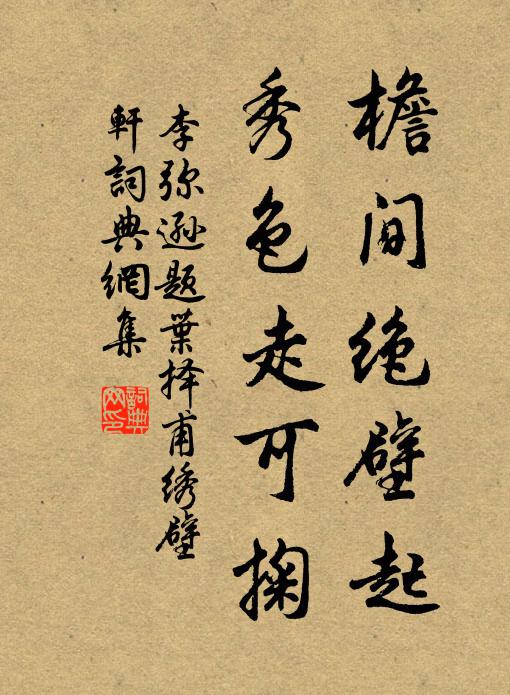 檐间绝壁起
秀色走可掬
李弥逊题葉择甫绣壁
軒詞典網集
詞典网印